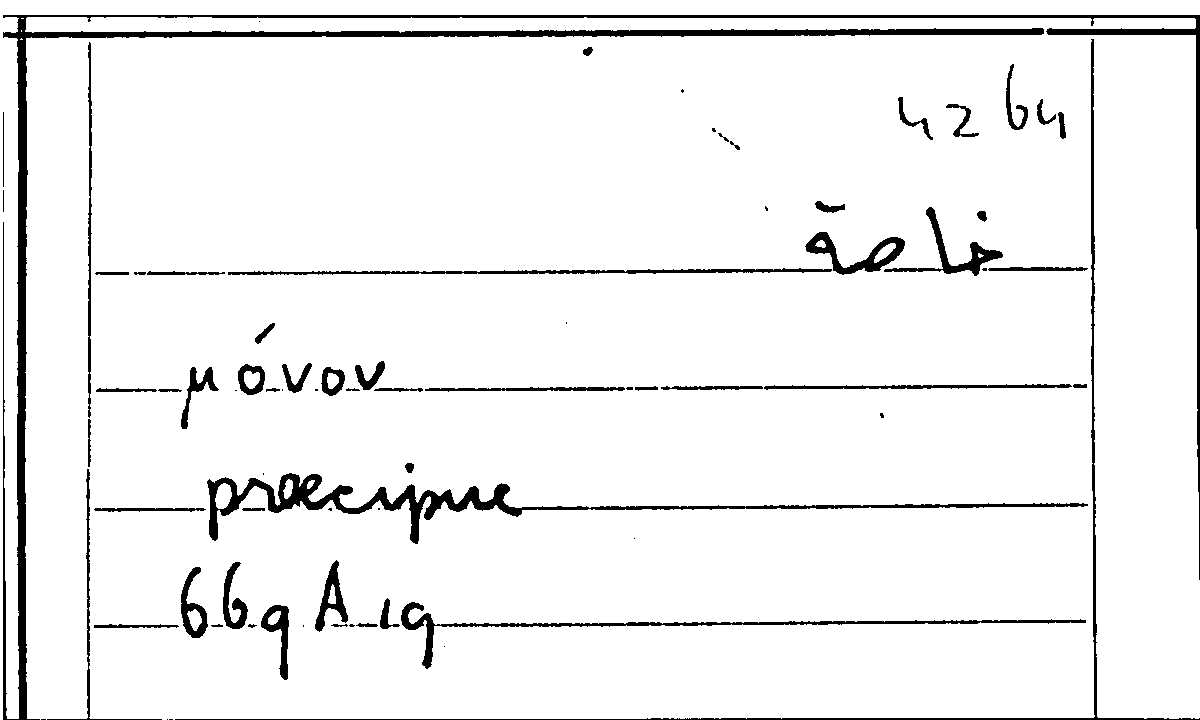 42 64
خاصة
μόνον
praecipue
669 A 19